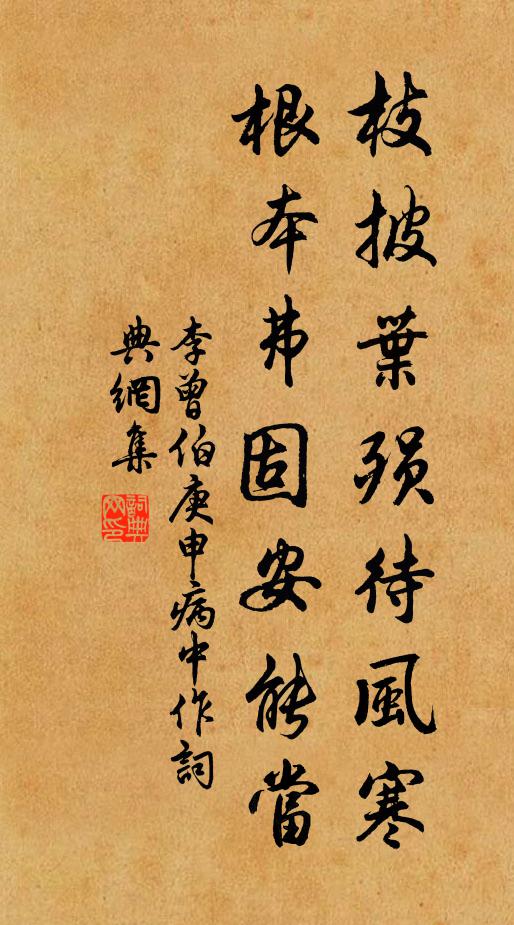 枝披葉殞待風寒
根本弗固安能當
李曾伯庚申病中作詞
典網集
詞典網印